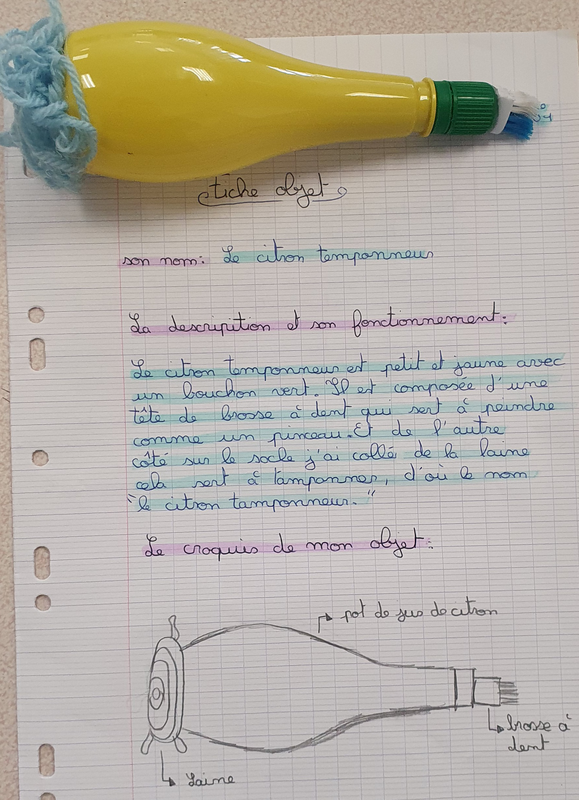 fiche objet
son nom: Le citron temponneur
La descripition et son fonctionnement:
Le citron temponneur est petit et jaune avec
un bouchon vert. Il est composée d'une
tête de brosse à dent qui sert à peindre
comme un pinceau. Et de l'autre
côté sur le socle j'ai collé de la laine
cela sert à tamponner, d'où le nom
"le citron tamponneur."
Le croquis de mon objet:
pot de jus de citron
brosse à
dent
laine